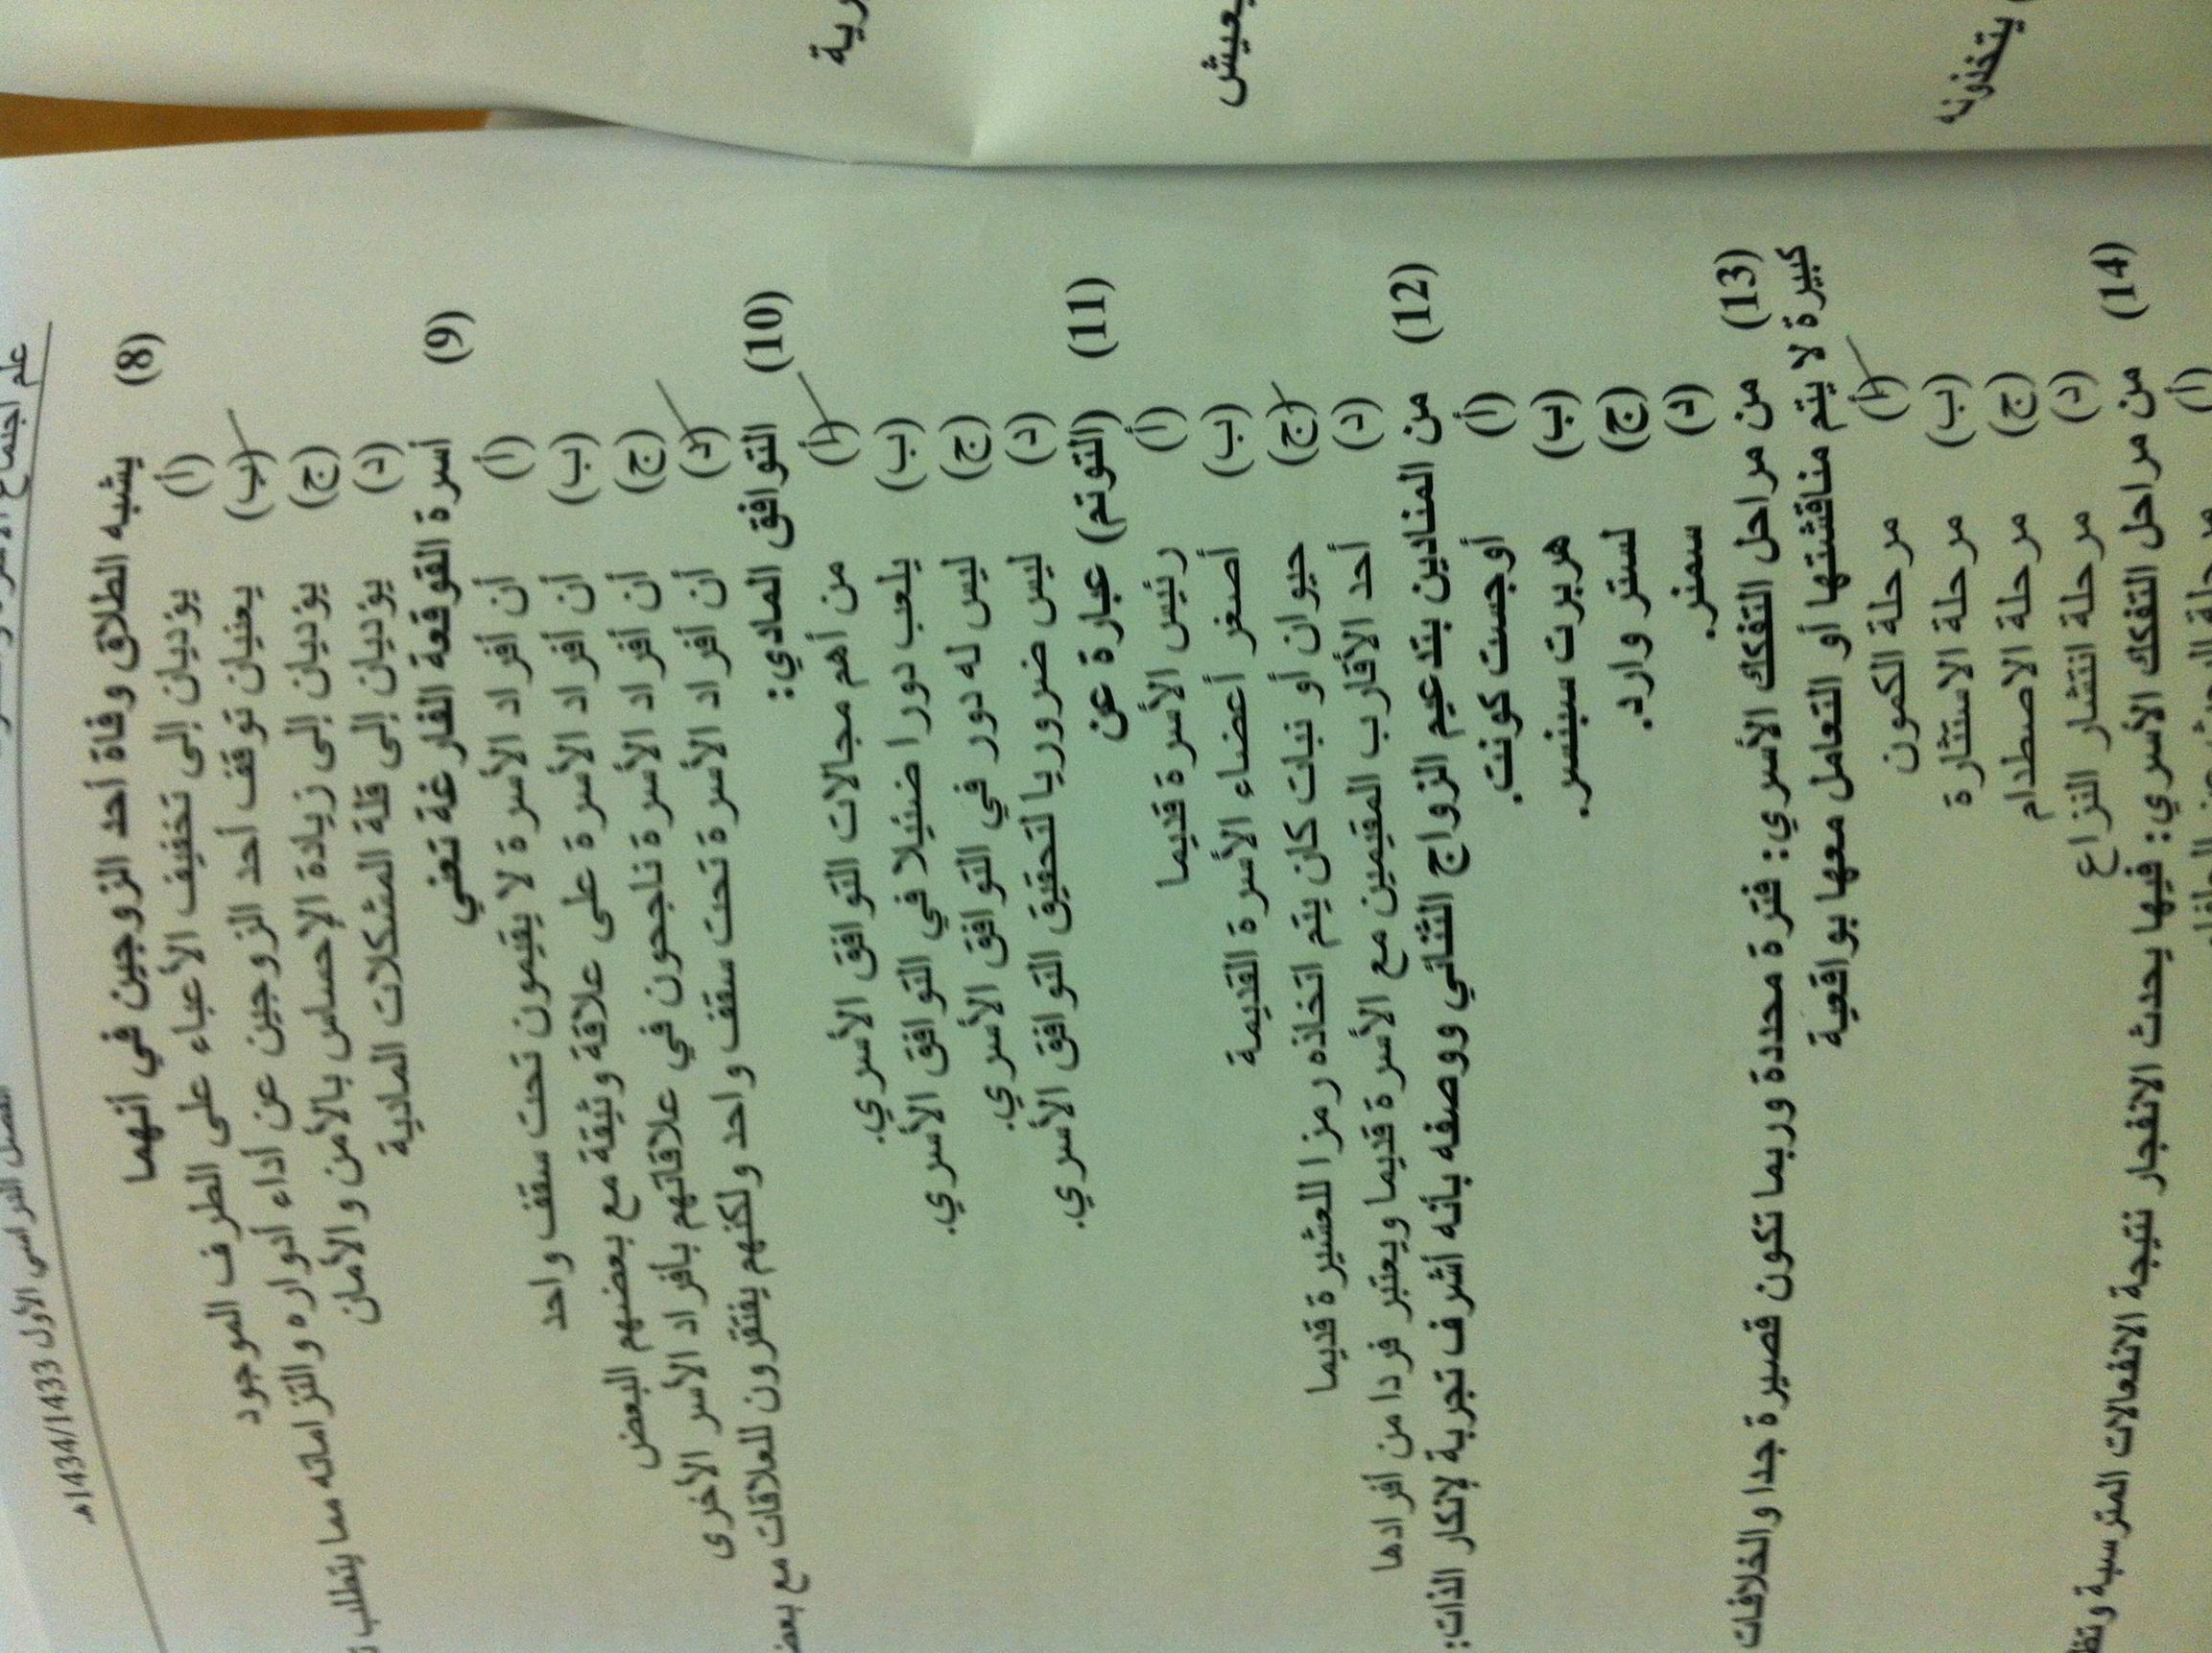 علم اجتماع
الفصل الدراسي الأول 1434/1433هـ
(8) يشبه الطلاق وفاة أحد الزوجين في أنهما
(أ) يؤديان إلى تخفيف الأعباء على الطرف الموجود
(ب) يعنيان توقف أحد الزوجين عن أداء أدواره والتزاماته مما يتطلب
(ج) يؤديان إلى زيادة الإحساس بالأمن والأمان
(د) يؤديان إلى قلة المشكلات المادية
(9) أسرة القوقعة الفارغة تعني
(أ) أن أفراد الأسرة لا يقيمون تحت سقف واحد
(ب) أن أفراد الأسرة على علاقة وثيقة مع بعضهم البعض
(ج) أن أفراد الأسرة ناجحون في علاقاتهم بأفراد الأسر الأخرى
(د) أن أفراد الأسرة تحت سقف واحد ولكنهم يفتقرون للعلاقات مع
(10) التوافق المادي:
(أ) من أهم مجالات التوافق الأسري.
(ب) يلعب دورا ضئيلا في التوافق الأسري.
(ج) ليس له دور في التوافق الأسري.
(د) ليس ضروريا لتحقيق التوافق الأسري.
(11) (التوتم) عبارة عن
(أ) رئيس الأسرة قديما
(ب) أصغر أعضاء الأسرة القديمة
(ج) حيوان أو نبات كان يتم اتخاذه رمزا للعشيرة قديما
(د) أحد الأقارب المقيمين مع الأسرة قديما ويعتبر فردا من أفرادها
(12) من المنادين بتدعيم الزواج الثنائي ووصفه بأنه أشرف تجربة لإنكار الذات:
(أ) أوجست كونت.
(ب) هربرت سبنسر.
(ج) لستر وارد.
(د) سمنر.
(13) من مراحل التفكك الأسري: فترة محددة وربما تكون قصيرة جدا والخلافات
كبيرة لا يتم مناقشتها أو التعامل معها بواقعية
(أ) مرحلة الكمون
(ب) مرحلة الاستثارة
(ج) مرحلة الاصطدام
(د) مرحلة انتشار النزاع
(14) من مراحل التفكك الأسري: فيها يحدث الانفجار نتيجة الانفعالات المترسبة
(أ) مرحلة
يعيش